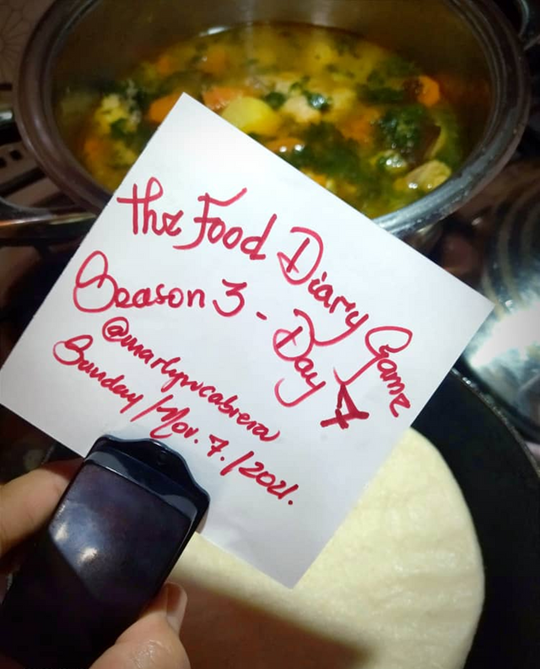 the Food Diary Game
Season 3 - Day 7
@marlynucabrera
Sunday/Nov. 7./2021.